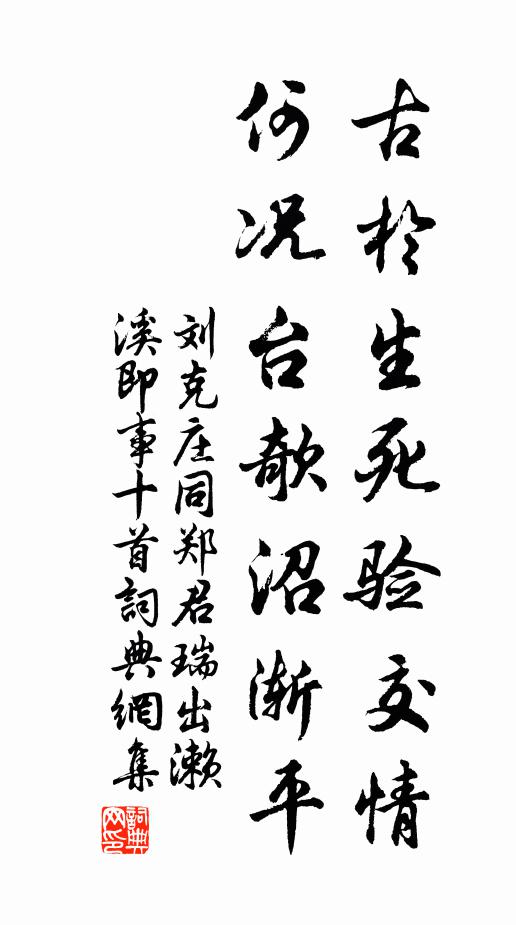 古于生死验交情
何况台欹沼渐平
刘克庄同郑君瑞出濑
溪即事十首詞典網集
詞典
网印